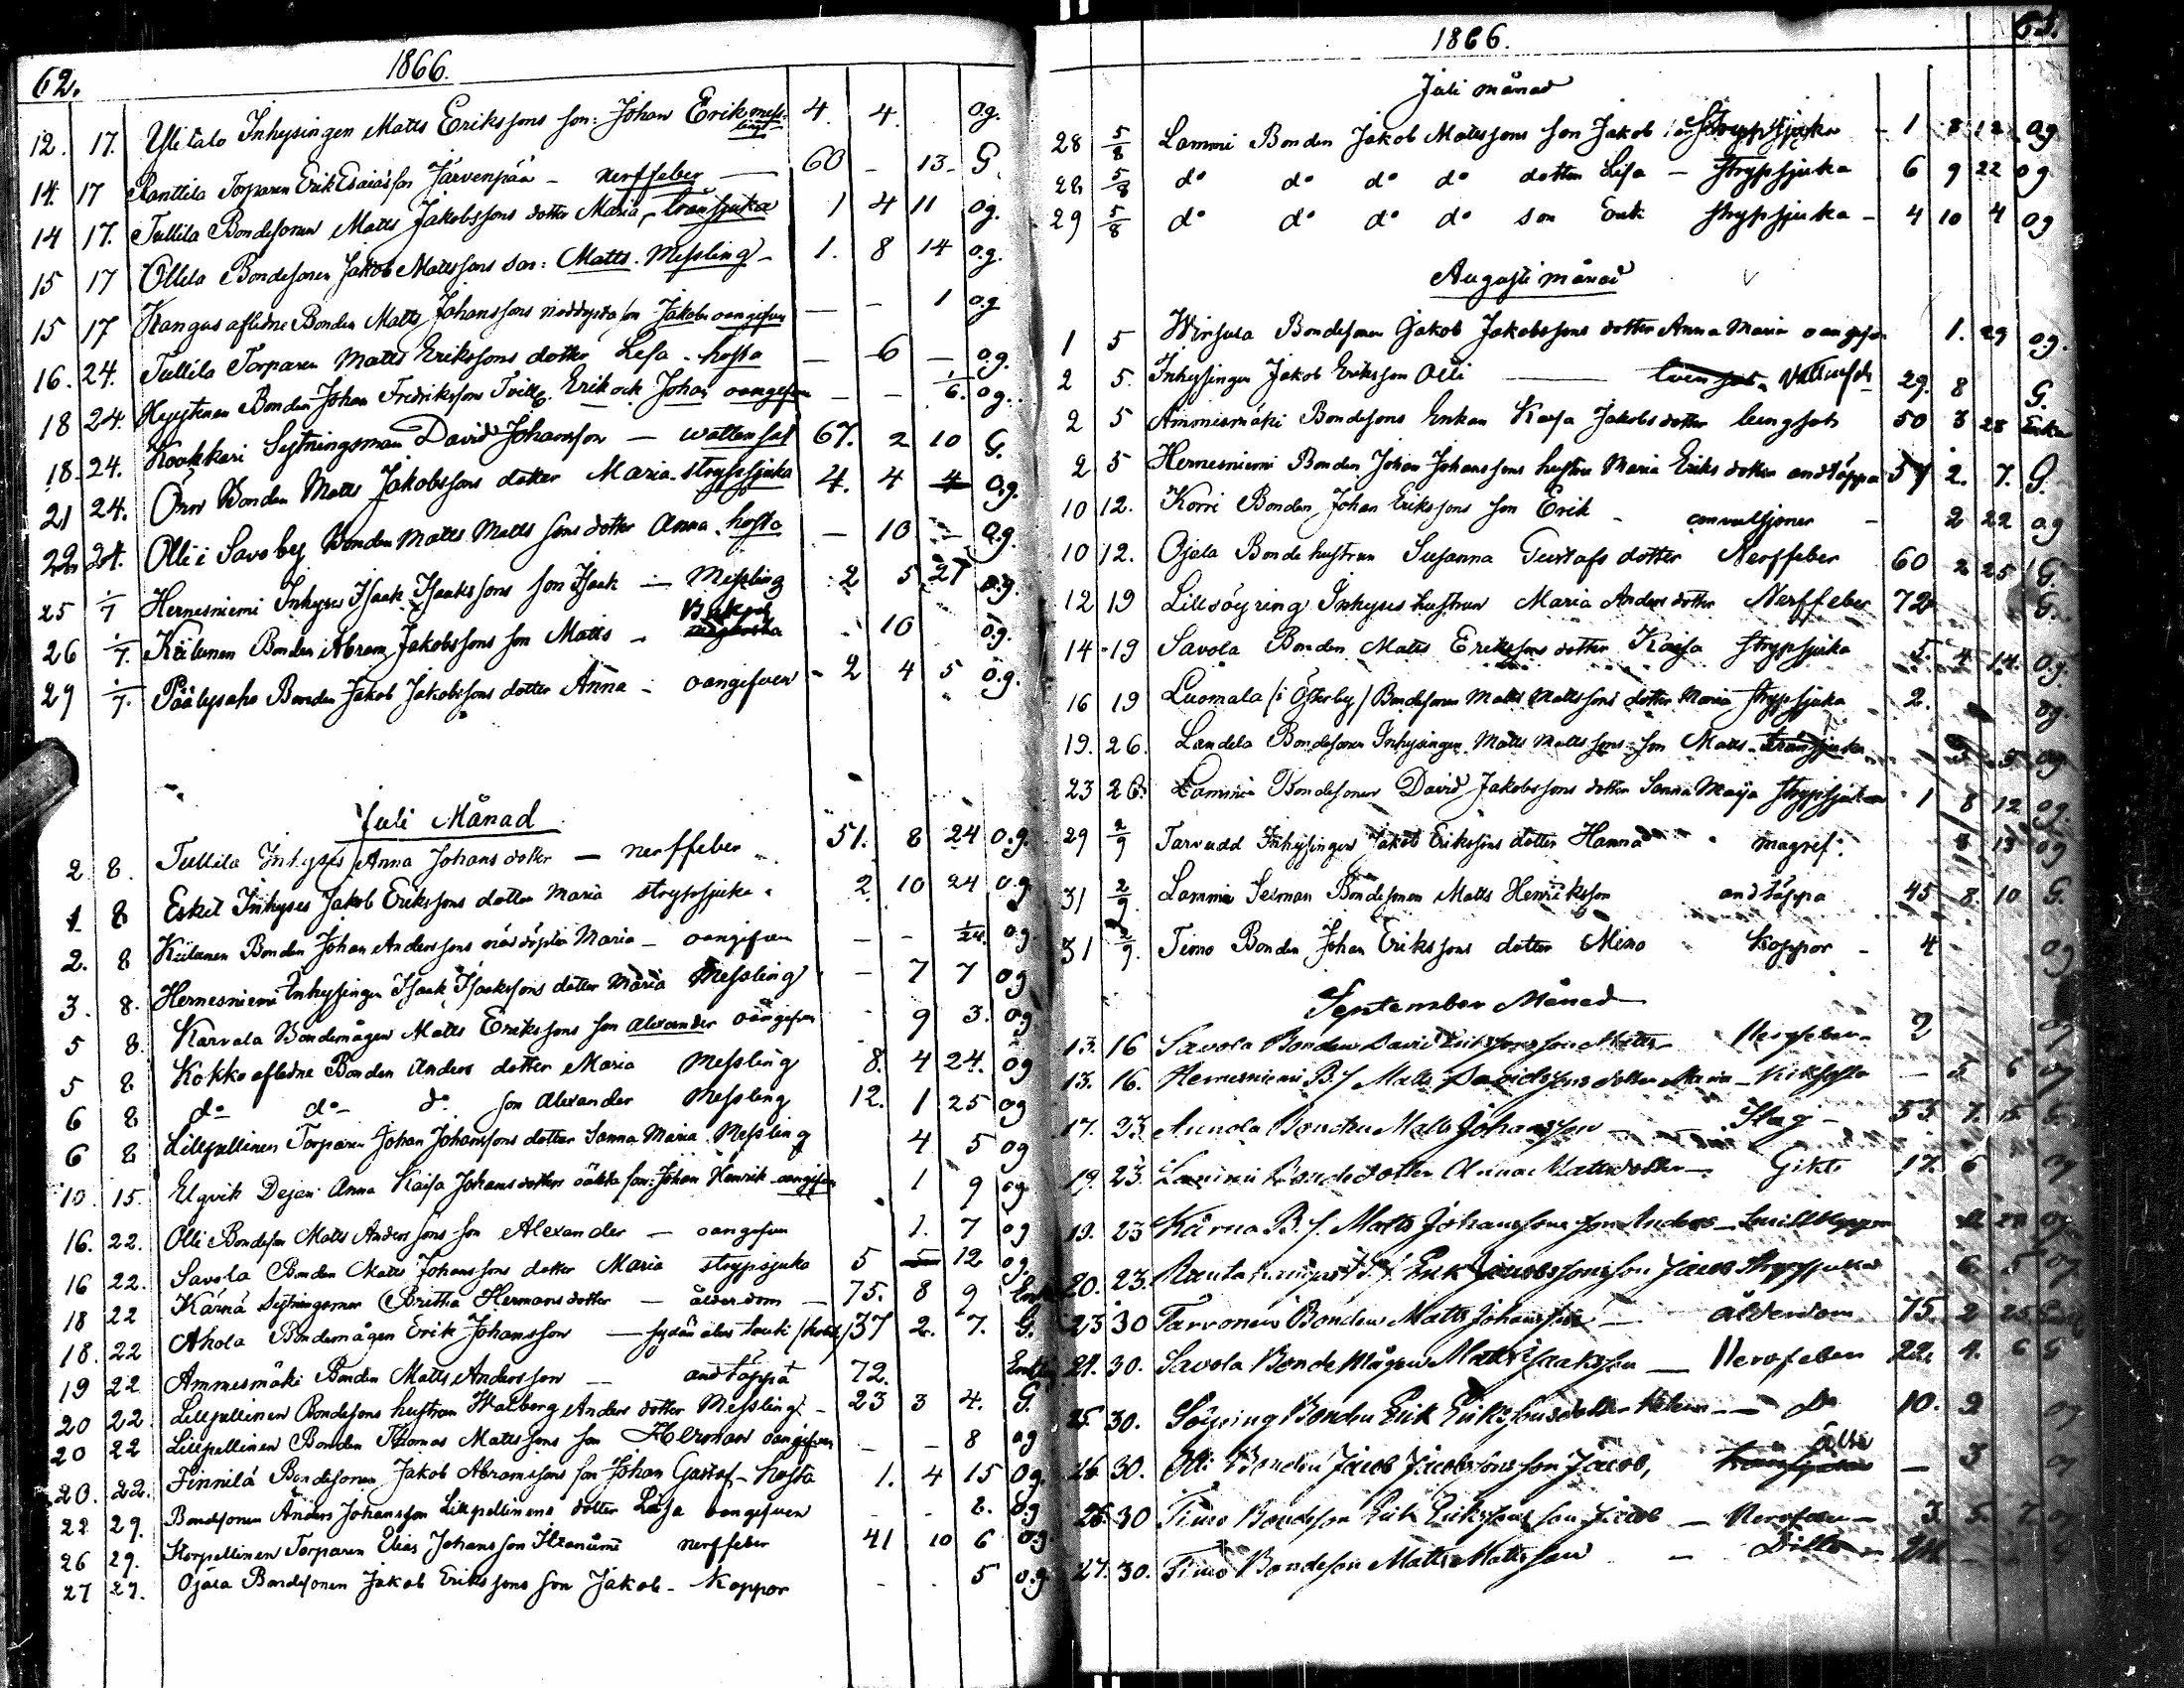 62.
1866.
12. 17. Ylitalo Inhysingen Matts Erikssons son: Johan Erik mess-
ling 4. 4. og.
14. 17 Ranttila Torparen Erik Esaiasson Järvenpää - nerffeber — 60 - 13 - G.
14 17. Tullila Bondesonen Matts Jakobssons dotter Maria, - Trånsjuka 1 4 11 og.
15 17 Ollila Bondesonen Jakob Mattssons son: Matts. Messling - 1. 8 14 o.g.
15 17 Kangas aflidne Bonden Matts Johanssons nöddöpta son Jakob oangifven — - 1 o.g
16. 24. Tullila Torparen Matts Erikssons dotter Lisa - hosta — 6 — o.g.
18 24. Hyytinen Bonden Johan Fredrikssons Tvill. Erik och Johan oangifven — - 1/6. og.
18. 24. Kookkari Sytningsman David Johansson — wattensot 67. 2 10 G.
21 24. Önn Bonden Matts Jakobssons dotter Maria. strypsjuka 4. 4 4 o.g.
22 24. Olli i Savoby Bonden Matts Matts sons dotter Anna. hosta — 10 — o.g.
25 1/7 Hernesniemi Inhyses Isaak Isaakssons son Isaak — Messling 2 5 27 o.g.
26 1/7. Kiilunen Bonden Abram Jakobssons son Matts - 10 o.g.
29 1/7. Päälysaho Bonden Jakob Jakobssons dotter Anna - oangifven - 2 4 5 o.g.
Juli Månad
2 8. Tullila Inhyses Anna Johansdotter — nerffeber 51. 8 24 o.g.
1 8 Eskil Inhyses Jakob Erikssons dotter Maria strypsjuka 2. 10 24 o.g
2. 8 Kiilunen Bonden Johan Anderssons nöddöpta Maria - oangifven - - 1/24. og.
3. 8. Hernesniemi Inhysingen Isaak Isaakssons dotter Maria Messling - 7 7 og
5 8. Karvala Bondemågen Matts Erikssons son Alexander oangifven - 9 3. og
5 8 Kokko aflidne Bonden Anders dotter Maria Messling 8. 4 24. og
6 8 do do do son Alexander Messling 12. 1 25 og
6 8 Lillpellinen Torparen Johan Johanssons dotter Sanna Maria Messling 4 5 og
10 15. Elgvik Dejan Anna Kaisa Johansdotters oäkta son: Johan Henrik oangifven 1 9 og
16. 22. Olli Bondeson Matts Anderssons son Alexander — oangifven 1. 7 og
16 22. Savola Bonden Matts Johanssons dotter Maria strypsjuka 5 5 12 og
18 22 Kärnä Sytningsman Britha Hermansdotter — ålderdom — 75. 8 9
18. 22 Ahola Bondemågen Erik Johansson — 37 2. 7. G.
19 22 Ammesmäki Bonden Matts Andersson — andtäppa 72.
20 22 Lillpellinen Bondesons hustrun Walborg Anders dotter Messling - 23 3 4. G.
20 22 Lillpellinen Bonden Thomas Mattssons son Herman oangifven - - 8 og
20. 22. Finnilä Bondesonen Jakob Abramssons son Johan Gustaf - hosta 1. 4 15 og.
22 29. Bondsonen Anders Johansson Lillpellinens dotter Lisa oangifven - - 2. og
26 29. Korpellinen Torparen Elias Johansson nerffeber 41 10 6 og.
27 29. Ojala Bondesonen Jakob Erikssons son Jakob - Koppor - - 5 o.g
1866.
63.
Juli månad
28 5/8 Lammi Bonden Jakob Mattssons son Jakob Strypsjuka - 1 8 12 og
28 5/8 do do do do dotter Lisa - strypsjuka 6 9 22 og
29 5/8 do do do do son Erik strypsjuka - 4 10 4 og
Augusti månad
1 5 Wirsula Bondesonen Jakob Jakobssons dotter Anna Maria oangifven 1. 29 og.
2 5. Inhysingen Jakob Eriksson Olli — 29. 8 G.
2 5 Ammesmäki Bondesons Enkan Kaisa Jakobsdotter lungsot 50 3 28 Enka
2 5 Hernesniemi Bonden Johan Johanssons hustru Maria Eriks dotter andtäppa 57 2. 7. G.
10 12. Korri Bonden Johan Erikssons son Erik - convulsioner - 2 22 og
10 12. Ojala Bonde hustrun Susanna Gustafs dotter Nerffeber 60 2 25 G.
12 19 Lillsöyring Inhyses hustrun Maria Anders dotter Nerffeber 72 G.
14 19 Savola Bonden Matts Erikssons dotter Kaisa strypsjuka 5. 4 14. og.
16 19 Luomala /i Österby/ Bondesonen Matts Mattssons dotter Maria strypsjuka 2. og.
19. 26. Landela Bondesonen Inhysingen Matts Mattssons son Matts - Trånsjuka 5 og.
23 26. Lammi Bondesonen David Jakobssons dotter Sanna Maija strypsjuka 1 8 12 og.
29 2/9 Tarvudd Inhysingen Jakob Erikssons dotter Hanna magref. 13 og
31 2/9. Lammi Selman Bondesonen Matts Henriksson andtäppa 45 8. 10 G.
31 2/9. Timo Bonden Johan Erikssons dotter Mina Koppor - 4 og
September Månad
13. 16 Savola Bonden David Erikssons son Matts - Nervfeber - og
13. 16. Hernesniemi B.s Matts Davidssons dotter Maria - Kikhosta — 5 6 og
17. 23 Annola Bonden Matts Johansson — Slag - 53 7.
19. 23. Lammi Bondedotter Anna Mattsdotter — Gikt 17. 6 og
19. 23 Kärnä B.s. Matts Johanssons son Anders - Smittkoppor og
20. 23. Rantakangas Erik Jacobssons son Jacob Strypsjuka 6 5 og
23 30 Tarvonen Bonden Matts Johansson - ålderdom 75. 2
24. 30. Savola Bonde Mågen Matts Isaaksson — Nervfeber 22. 4. 6 G
25. 30. Söyring Bonden Erik Erikssons dotter — do 10. 9 og
26 30. Olli Bonden Jacob Jacobssons son Jacob, — 3 og
26 30 Timo Bondeson Erik Erikssons son Jacob — Nervfeber - 3. 5.
27. 30. Timo Bondeson Matts Mattsson - Ditto